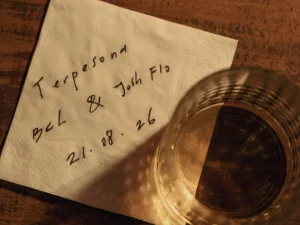 Terpesona
Bel & Josh Flo
21.08.26